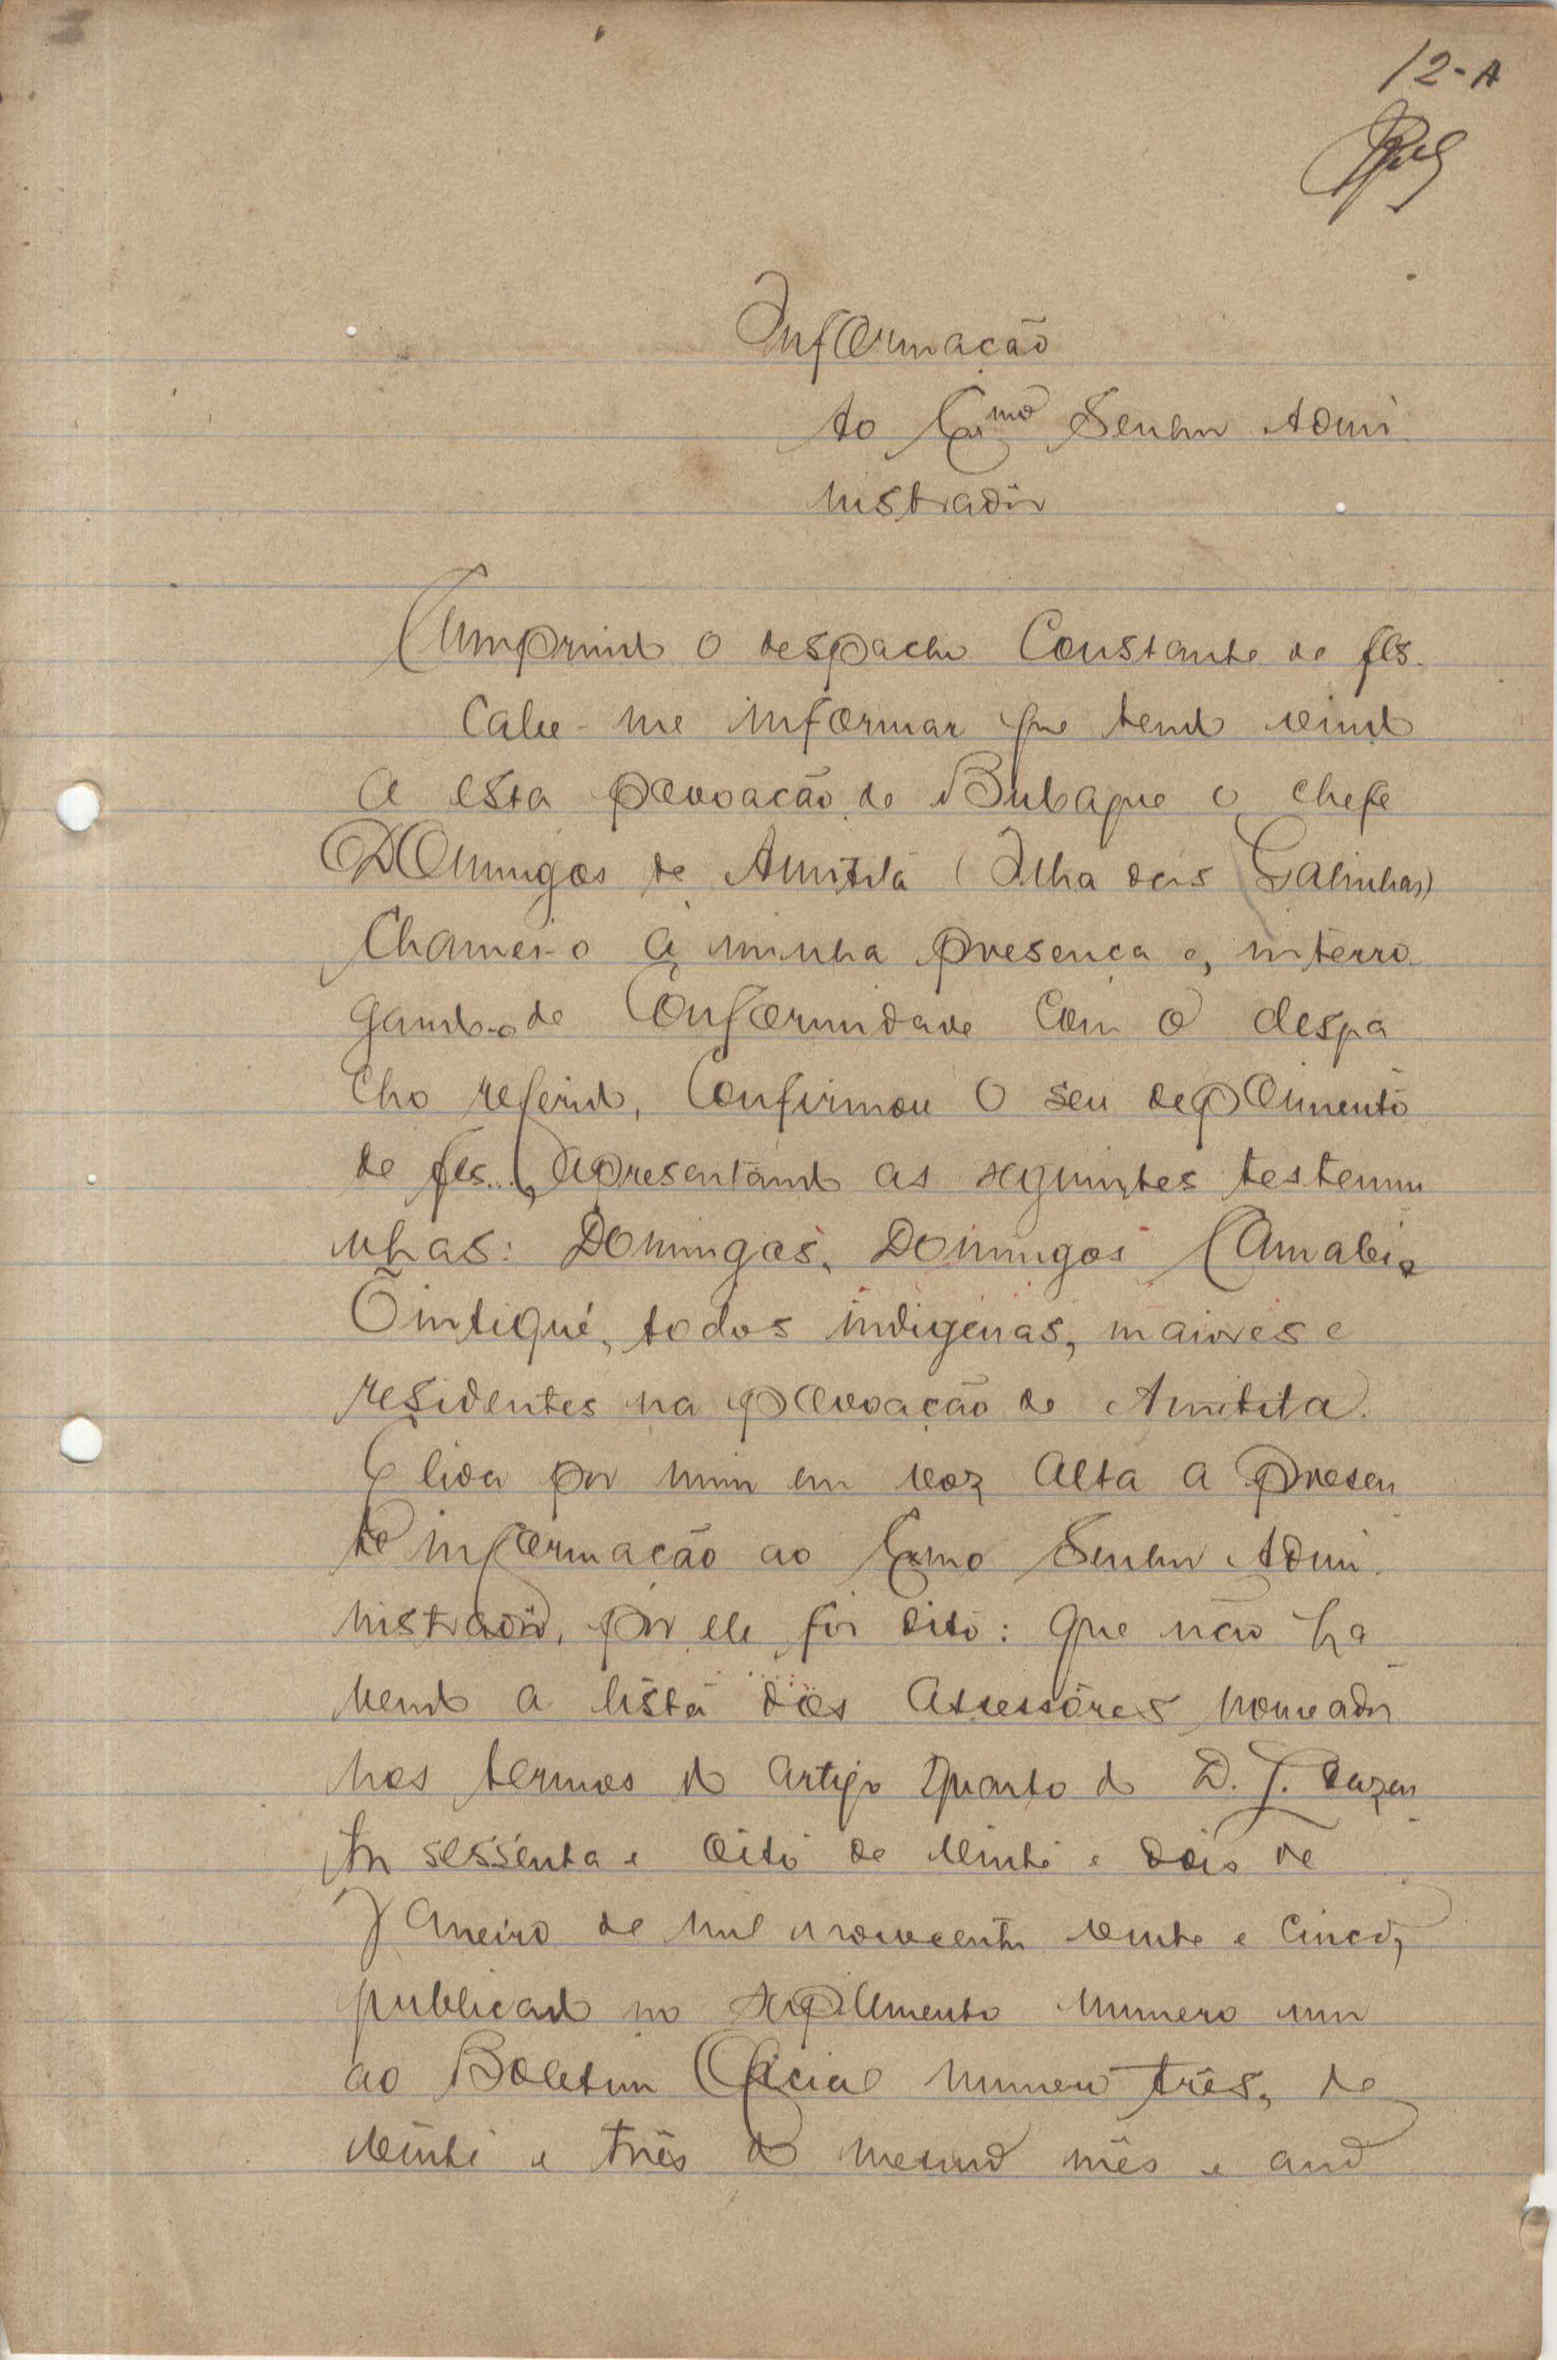 12-A
Informação
Ao Exmo Senhor Admi
nistrador
Cumprindo o despacho constante de fls.
cabe-me informar que tendo vindo
a esta povoação de Bubaque o chefe
Domingos de Amitita (Ilha das Galinhas)
chamei-o à minha presença e, interro
gando-o de conformidade com o despa
cho referido, confirmou o seu depoimento
de fls..., apresentando as seguintes testemu
nhas: Domingas, Domingos Camabi e
Ointiqué, todos indigenas, maiores e
residentes na povoação de Amitita.
E lida por mim em voz alta a presen
te informação ao Exmo Senhor Admi
nistrador, por ele foi dito: que não ha
vendo a lista dos assessôres nomeados
nos termos do artigo quarto do D. L. duzen
tos sessenta e oito de vinte e dois de
Janeiro de mil novecentos vinte e cinco,
publicado no suplemento numero um
ao Boletim Oficial numero três, de
vinte e três do mesmo mês e ano